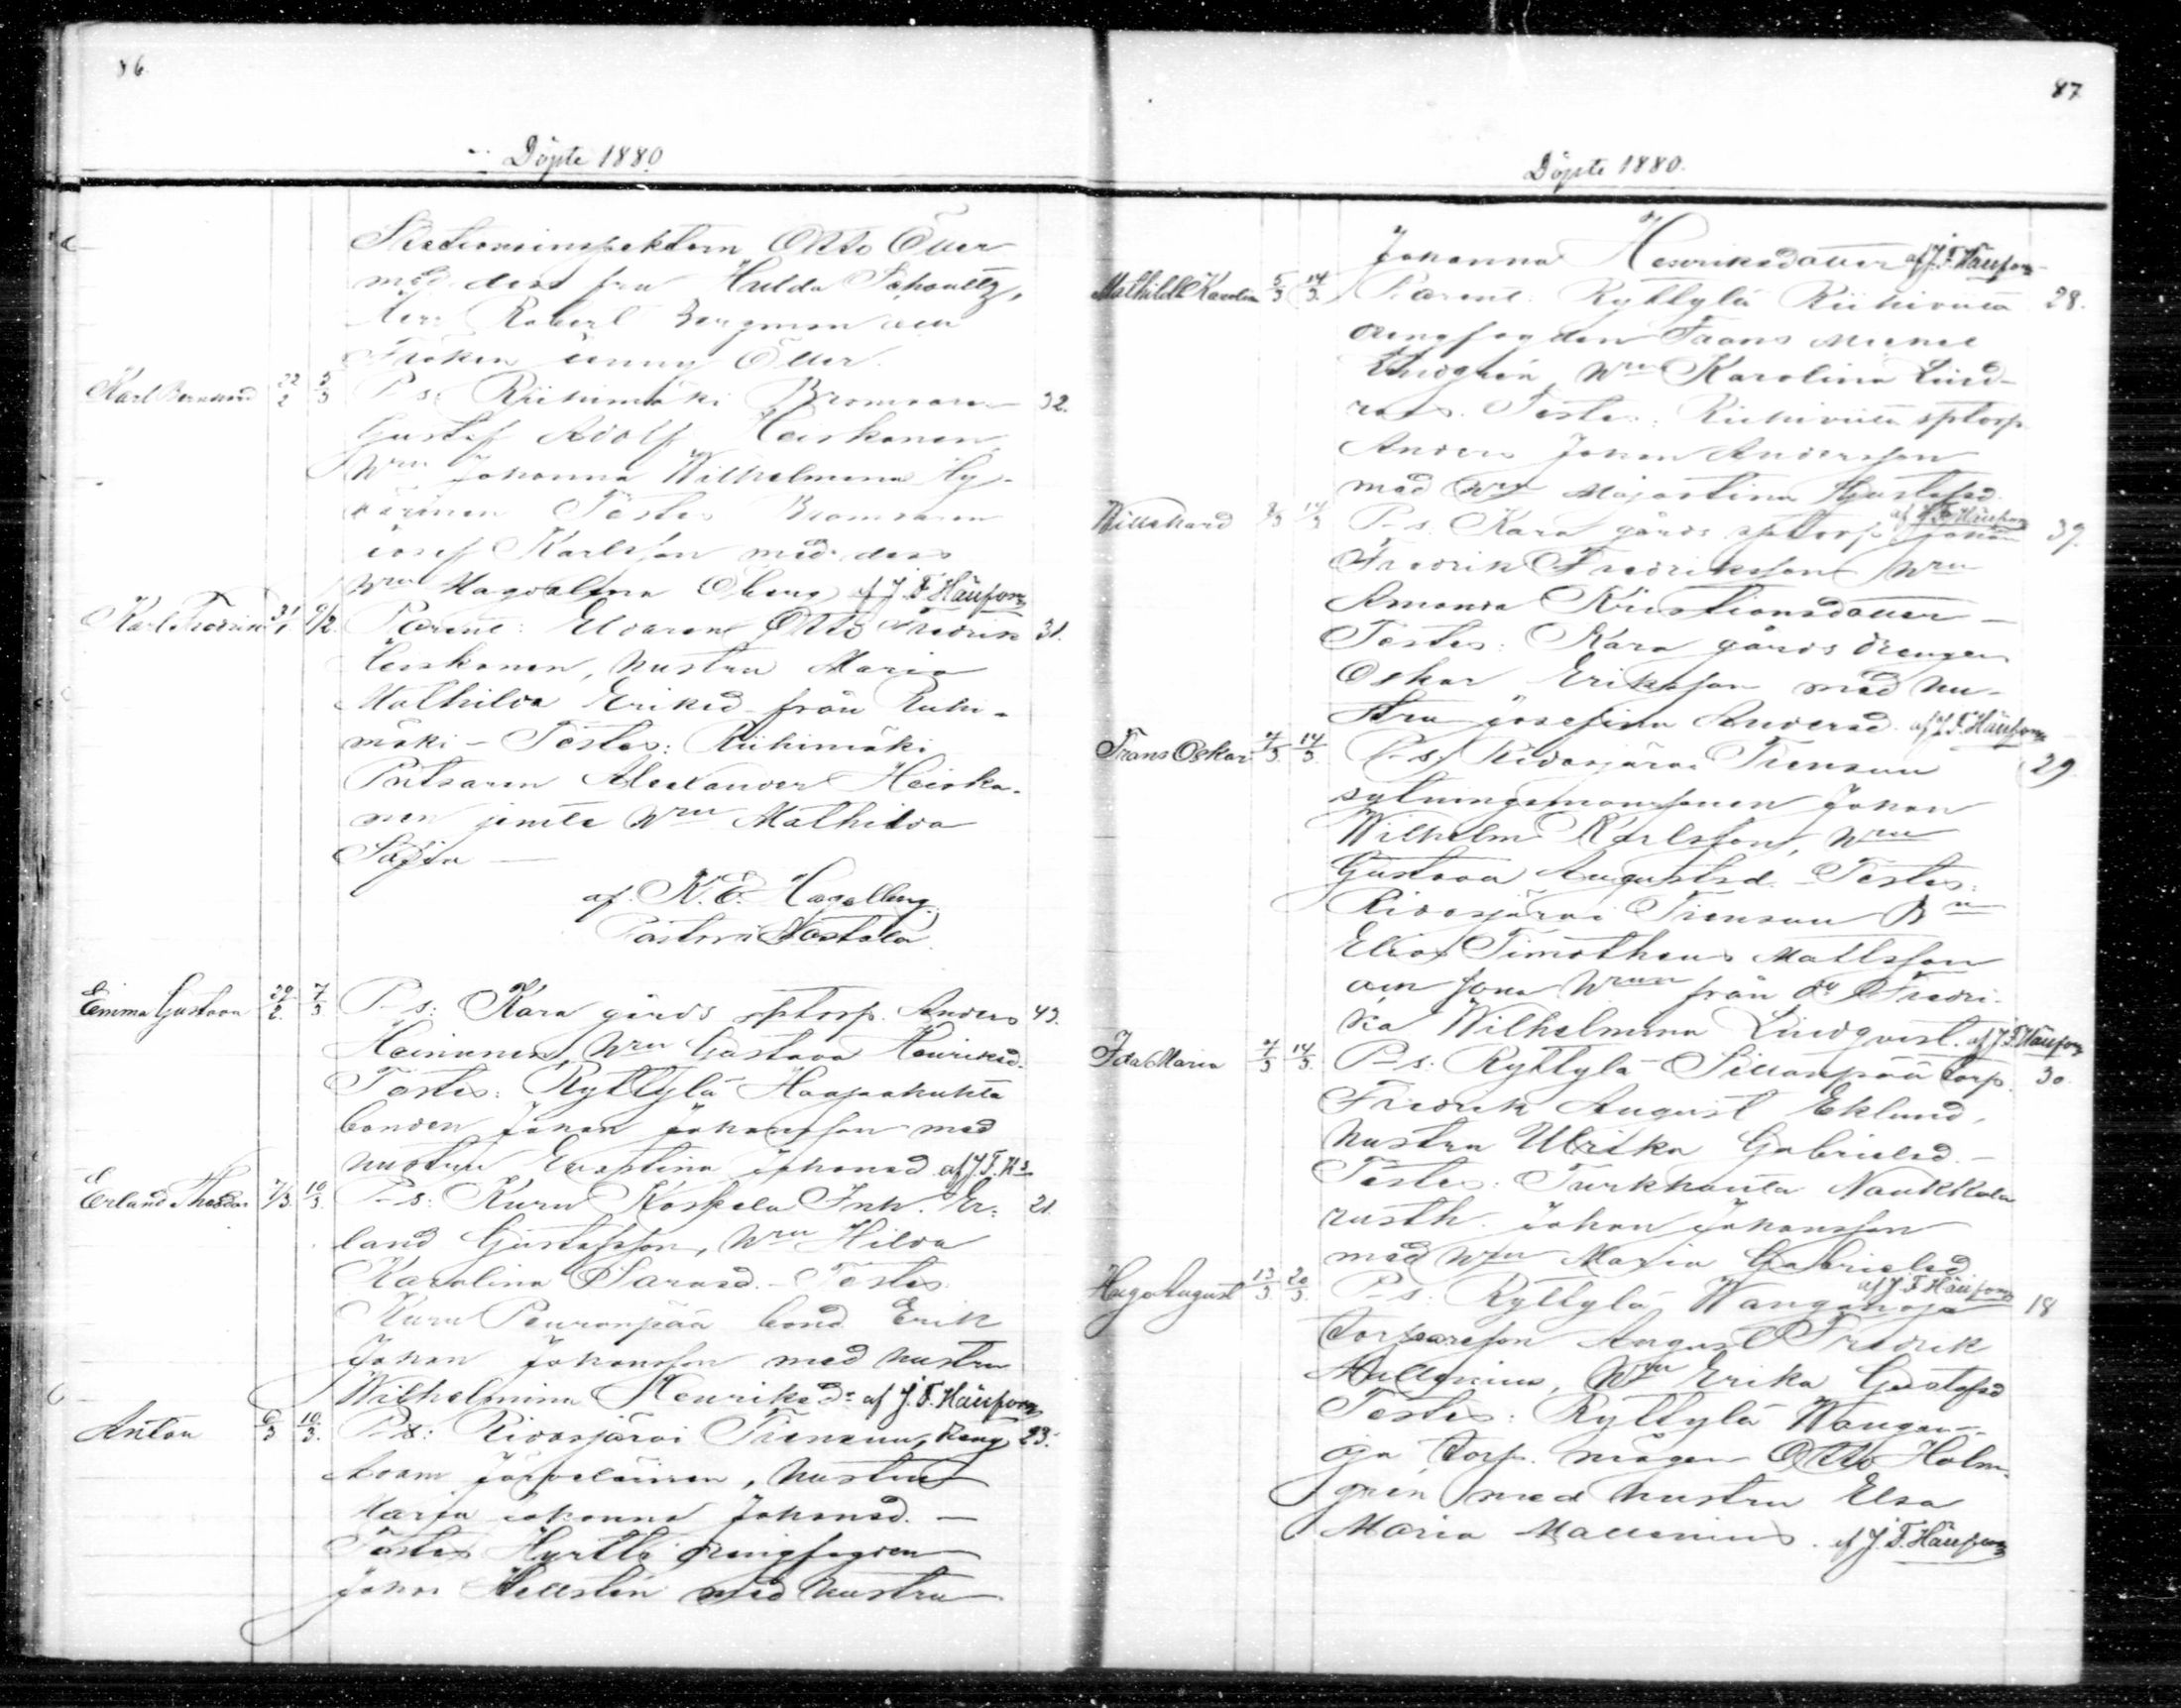 86.
Döpte 1880.
Stationsinspektorn Otto Öller
med dess fru Hulda Schoultz,
Herr Robert Bergman och
Fröken Öller
Karl Bernhard 22/2 5/3 P-s. Riihimäki Bromsaren 32.
Gustaf Adolf Heiskanen,
Hru Johanna Wilhelmina Hy-
värinen Testes Bromsaren
Josef Karlsson med dess
Hru Magdalena Öberg af J. F. Häyfors
Karl Fredrik 31/1 9/2 Parent: Eldaren Otto Fredrik 31.
Heiskanen, hustru Maria
Mathilda Eriksd. från Riihi-
mäki - Testes: Riihimäki
Putsaren Alexander Heiska-
nen jemte Hru Mathilda
Sofia
af K. E. Hagelberg.
Emma Gustava 29/2 7/3 P-s: Kara gårds sptorp. Anders 43.
Heinonen, Hru Gustava Henriksd.
Testes: Ryttylä Haapahuhta
bonden Johan Johansson med
hustru Eva Stina Johansd. af J. F. Hs
Erland Theodor 7/3 10/3 P-s: Kuru Koskela Inh. Er- 21.
land Gustafsson, Hru Hilda
Karolina Sarasd. - Testes
Kuru Peuranpää bond. Erik
Johan Johansson med hustru
Wilhelmina Henriksd: af J. F. Häyfors
Anton 6/3 10/3 P-s: Ridasjärvi Trensuu, Reng 23.
Adam Järveläinen, hustru
Maria Johanna Johansd. -
Testes Hyrttö Rengfogden
Johan Hellsten med hustru
87
Döpte 1880.
Johanna Henriksdotter af J. F. Häyfors
Mathilda Karolina 5/3 14/3 Parent: Ryttylä Riihiviita 28.
Rengfogden Frans Michel
Lindgrén, Hru Karolina Lind-
roos. Testes: Riihiviita sptorp.
Anders Johan Andersson
med Hru Maja Stina Gustafsd.
af J. F. Häyfors
Willehard 8/3 14/3 P-s. Kara gårds sptorp. Johan 37.
Fredrik Fredriksson Hru
Amanda Kristiansdotter -
Testes: Kara gårds drengen
Oskar Eriksson med hu-
stru Josefina Andersd. af J. F. Häyfors
Frans Oskar 7/3 14/3 P-s: Ridasjärvi Trensuu 29.
sytningsmansonen Johan
Wilhelm Karlsson, Hru
Gustava Augustsd. - Testes:
Ridasjärvi Trensuu Bn
Elias Timotheus Mattsson
och Jona Hrun från do Fredri-
ka Wilhelmina Lindqvist. af J. F. Häyfors
Ida Maria 7/3 14/3 P-s: Ryttylä Sillanpää torp. 30.
Fredrik August Eklund,
hustru Ulrika Gabrielsd. -
Testes: Turkhauta Naukkala
rusth. Johan Johansson
med Hru Maria Gabrielsd.
af J. F. Häyfors
Hugo August 13/3 20/3 P-s. Ryttylä Wanganoja 18
torpareson August Fredrik
Mallenius, Hru Erika Gustafsd
Testes: Ryttylä Wangan-
oja torp. mågen Otto Holm-
gren med hustru Elsa
Maria Mallenius. af J. F. Häyfors